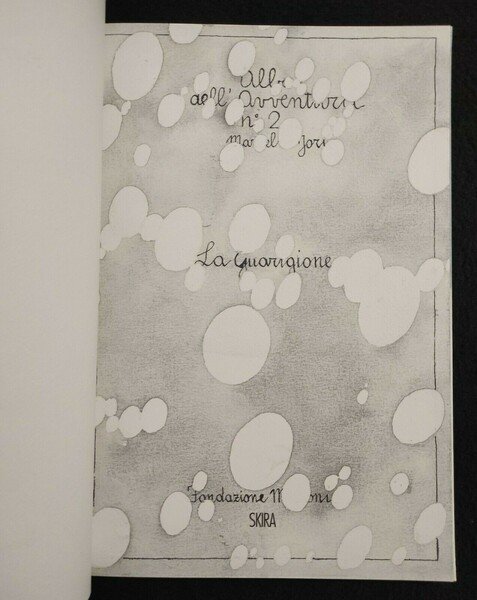 Alb
dell'Avventura
n° 2
Ma el Jori
La Guarigione
Fondazione M oni
SKIRA